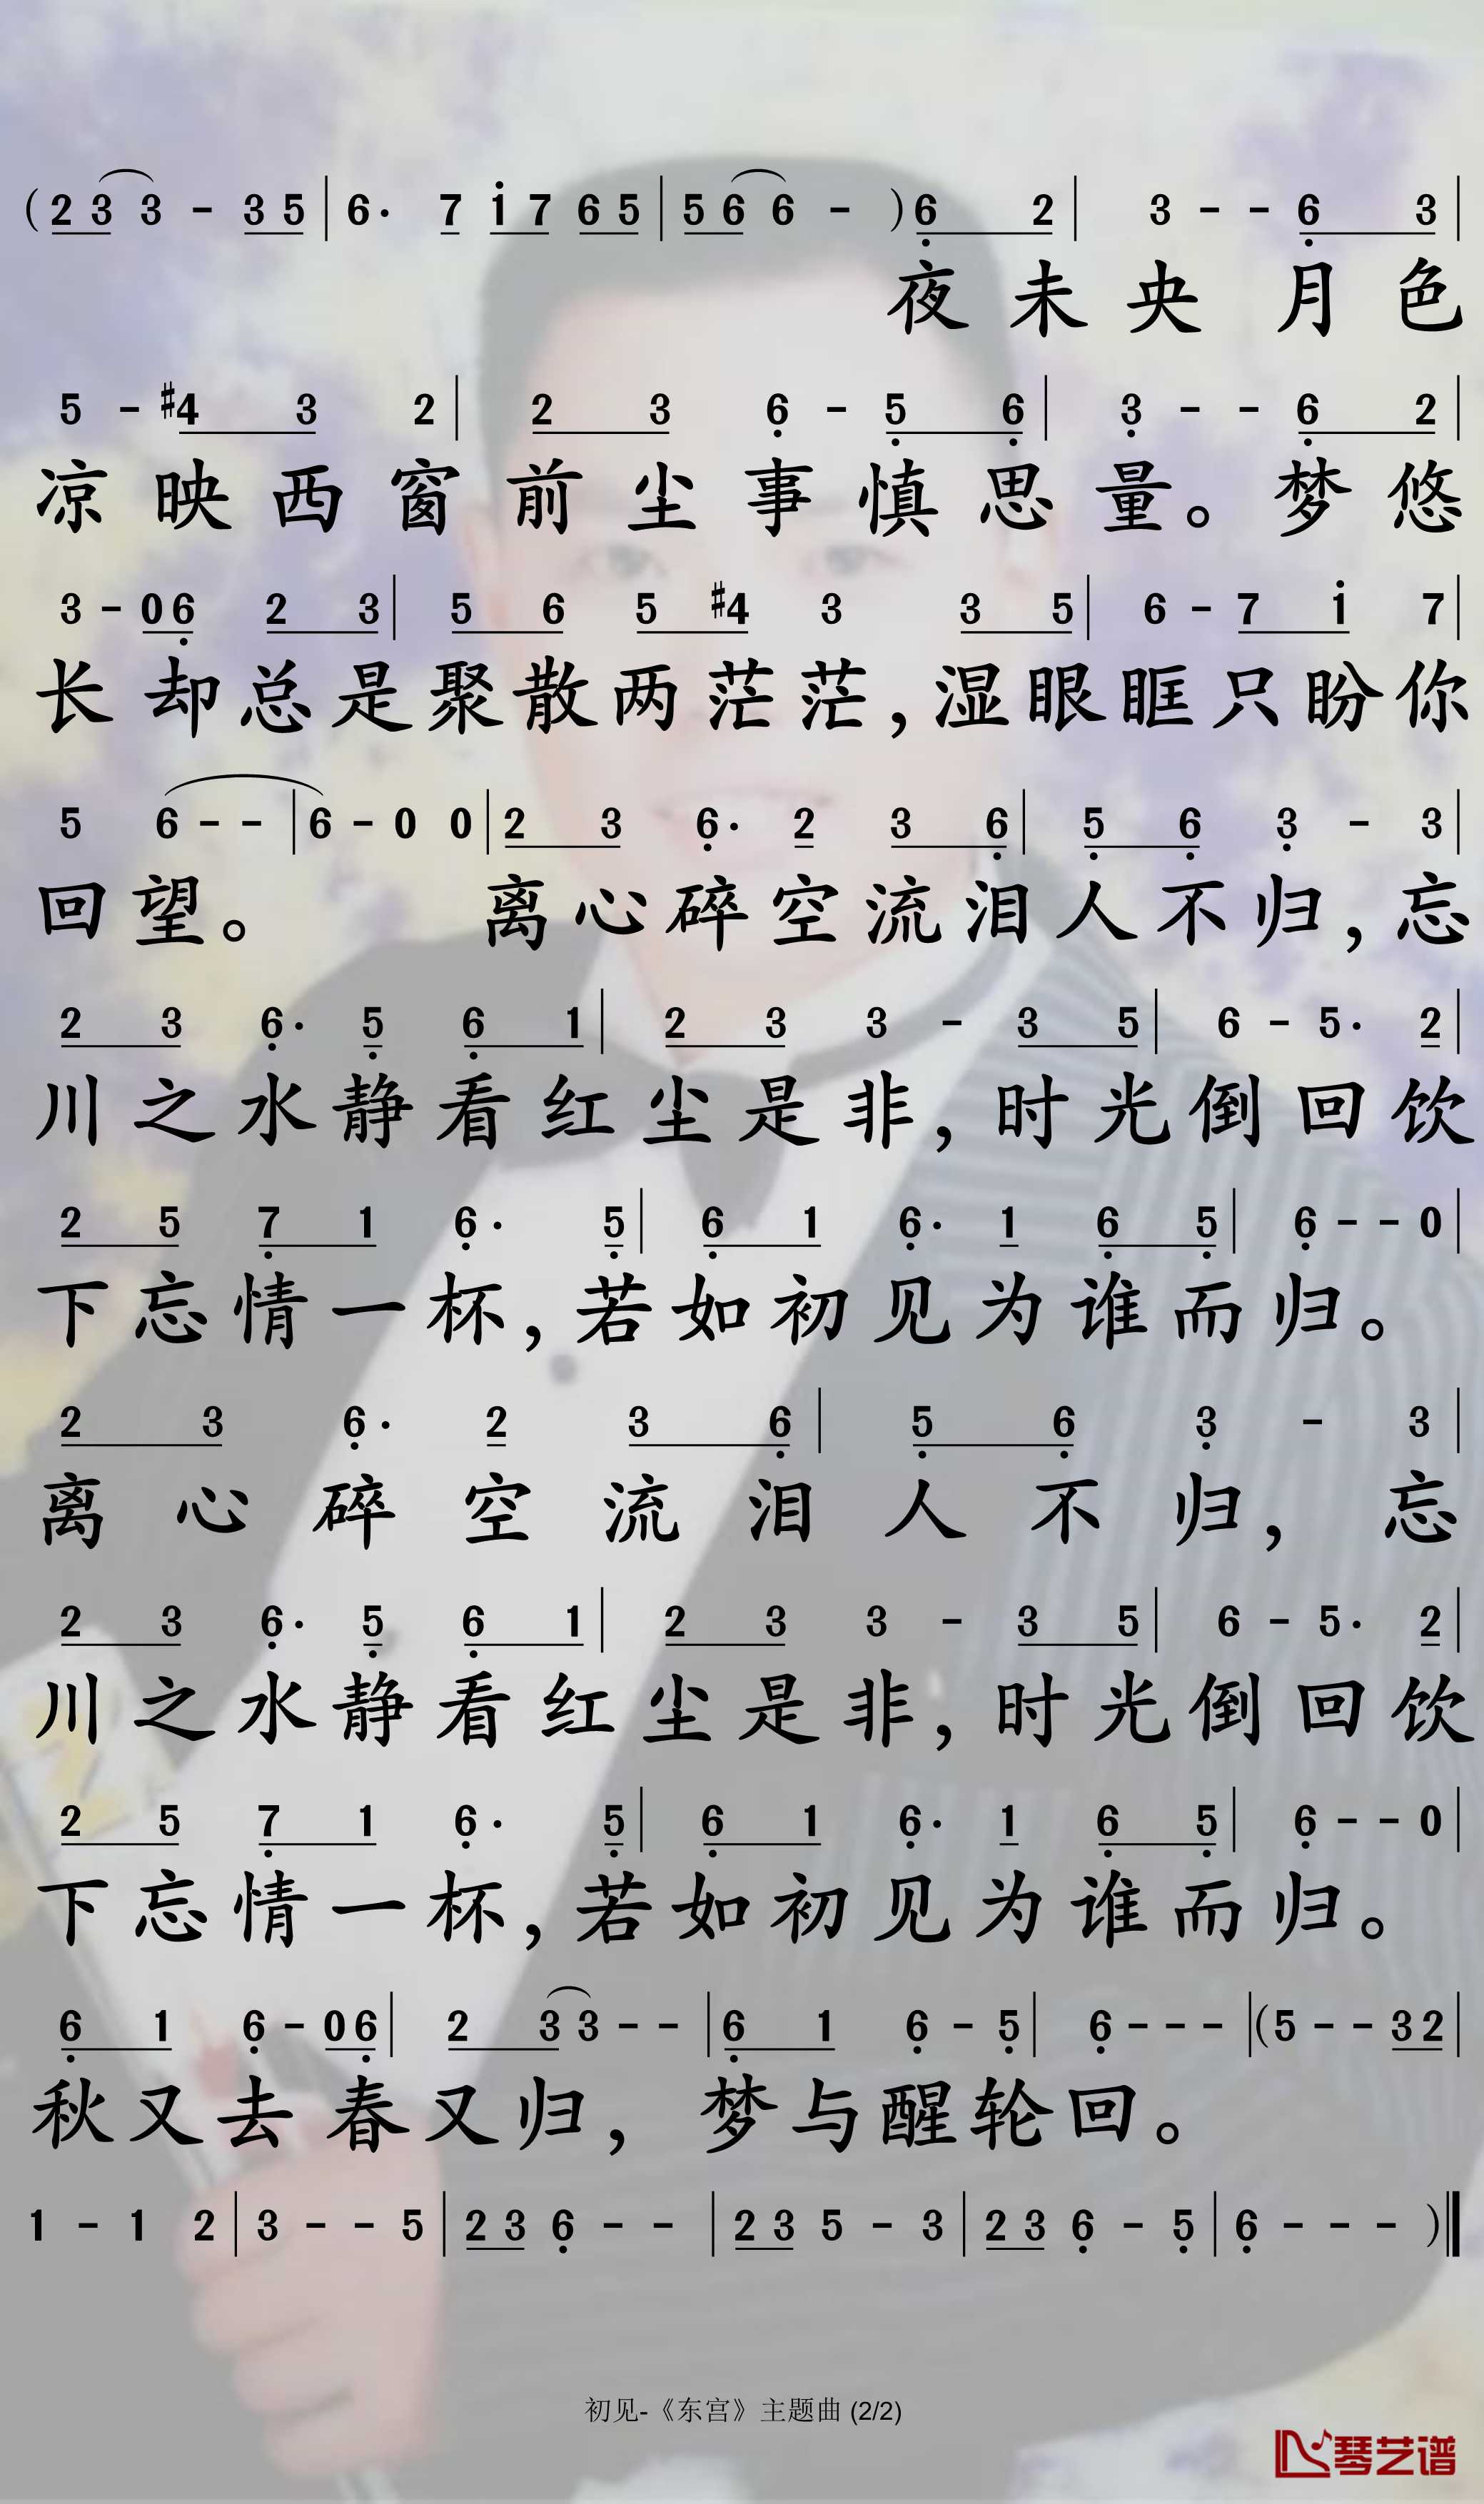 ( 2 3 3 - 3 5 | 6· 7 1̇ 7 6 5 | 5 6 6 - ) 6̣ 2 | 3 - - 6̣ 3 |
夜 未 央 月 色
5 - #4 3 2 | 2 3 6̣ - 5̣ 6̣ | 3̣ - - 6̣ 2 |
凉 映 西 窗 前 尘 事 慎 思 量。梦 悠
3 - 0 6̣ 2 3 | 5 6 5 #4 3 3 5 | 6 - 7 1̇ 7 |
长 却 总 是 聚 散 两 茫 茫,湿 眼 眶 只 盼 你
5 6 - - | 6 - 0 0 | 2 3 6̣· 2 3 6̣ | 5̣ 6̣ 3̣ - 3 |
回 望。 离 心 碎 空 流 泪 人 不 归,忘
2 3 6̣· 5̣ 6̣ 1 | 2 3 3 - 3 5 | 6 - 5· 2 |
川 之 水 静 看 红 尘 是 非,时 光 倒 回 饮
2 5 7̣ 1 6̣· 5̣ | 6̣ 1 6̣· 1 6̣ 5̣ | 6̣ - - 0 |
下 忘 情 一 杯,若 如 初 见 为 谁 而 归。
2 3 6̣· 2 3 6̣ | 5̣ 6̣ 3̣ - 3 |
离 心 碎 空 流 泪 人 不 归, 忘
2 3 6̣· 5̣ 6̣ 1 | 2 3 3 - 3 5 | 6 - 5· 2 |
川 之 水 静 看 红 尘 是 非,时 光 倒 回 饮
2 5 7̣ 1 6̣· 5̣ | 6̣ 1 6̣· 1 6̣ 5̣ | 6̣ - - 0 |
下 忘 情 一 杯,若 如 初 见 为 谁 而 归。
6̣ 1 6̣ - 0 6̣ | 2 3 3 - - | 6̣ 1 6̣ - 5̣ | 6̣ - - - | ( 5 - - 3 2 |
秋 又 去 春 又 归, 梦 与 醒 轮 回。
1 - 1 2 | 3 - - 5 | 2 3 6̣ - - | 2 3 5 - 3 | 2 3 6̣ - 5̣ | 6̣ - - - ) ‖
初见-《东宫》主题曲 (2/2)
琴艺谱